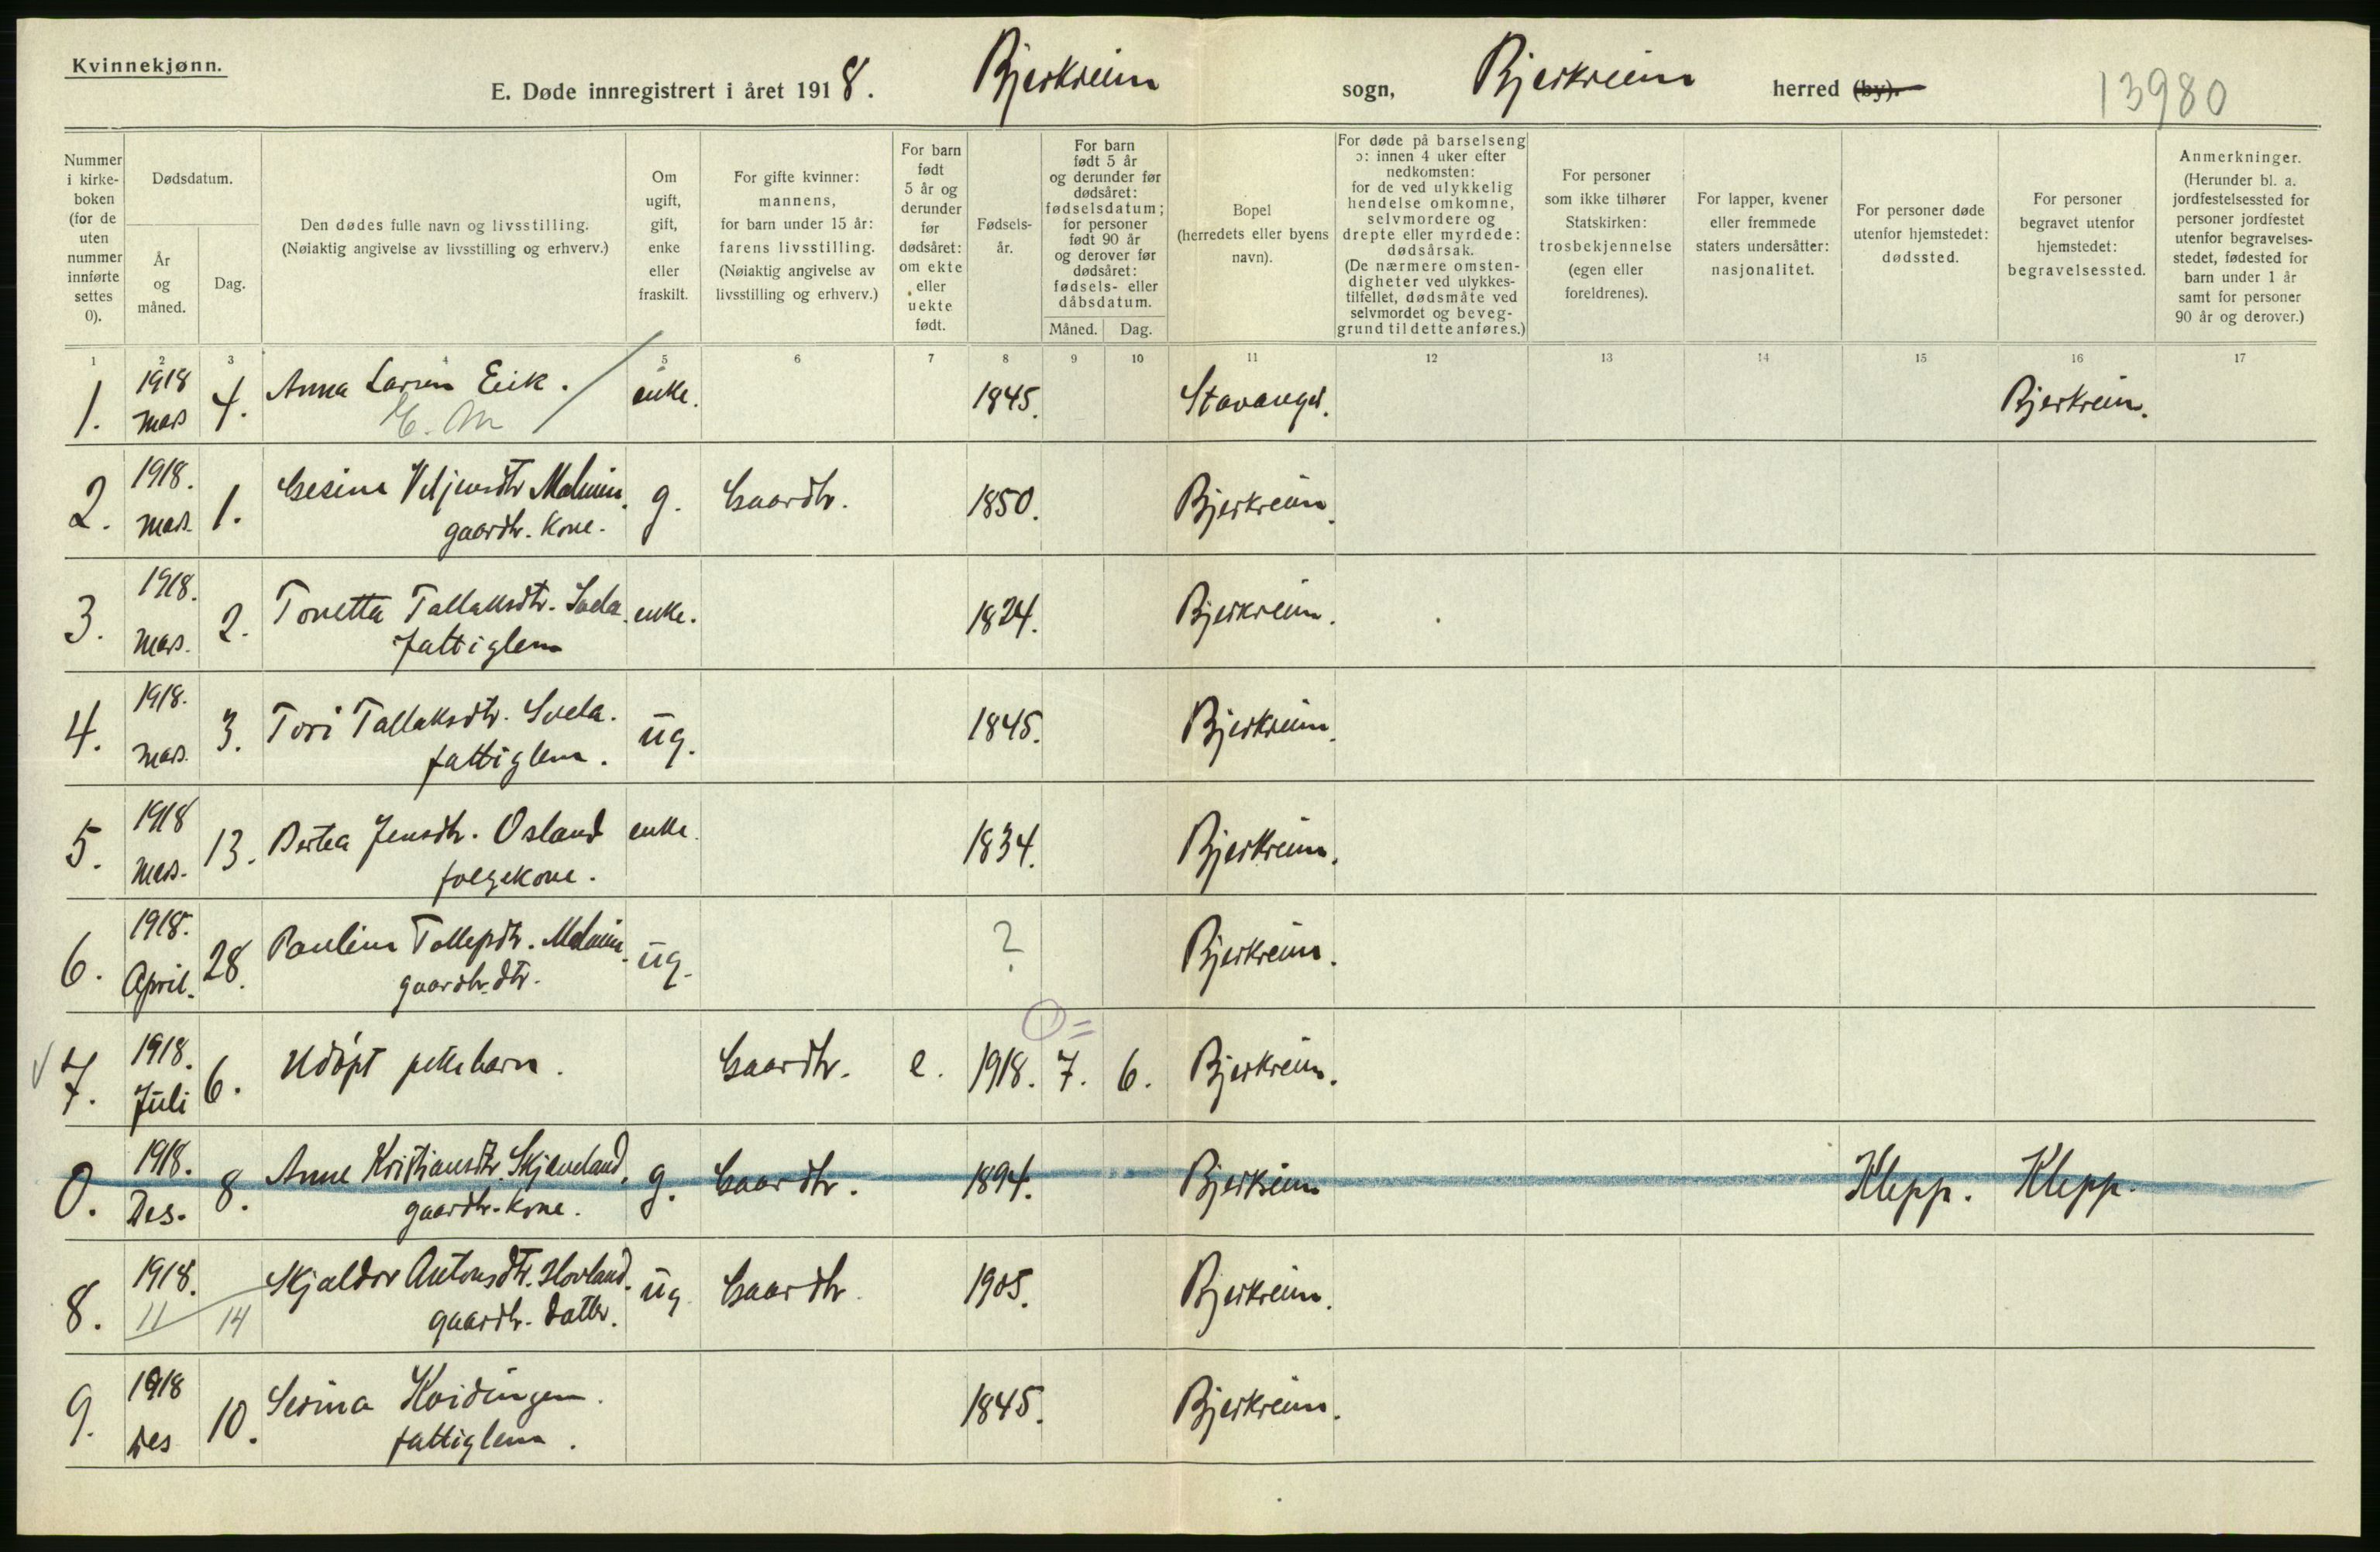 Kvinnekjønn.
E. Døde innregistrert i året 1918. Bjerkreim sogn, Bjerkreim herred (by).
13980
Nummer i kirke-boken (for de uten nummer innførte settes 0).
Dødsdatum.
År og måned.
Dag.
Den dødes fulle navn og livsstilling.
(Nøiaktig angivelse av livsstilling og erhverv.)
Om ugift, gift, enke eller fraskilt.
For gifte kvinner: mannens, for barn under 15 år: farens livsstilling. (Nøiaktig angivelse av livsstilling og erhverv.)
For barn født 5 år og derunder før dødsåret: om ekte eller uekte født.
Fødsels-år.
For barn født 5 år og derunder før dødsåret: fødselsdatum; for personer født 90 år og derover før dødsåret: fødsels- eller dåbsdatum.
Måned. Dag.
Bopel (herredets eller byens navn).
For døde på barselseng ɔ: innen 4 uker efter nedkomsten: for de ved ulykkelig hendelse omkomne, selvmordere og drepte eller myrdede: dødsårsak. (De nærmere omsten-digheter ved ulykkes-tilfellet, dødsmåte ved selvmordet og beveg-grund til dette anføres.)
For personer som ikke tilhører Statskirken: trosbekjennelse (egen eller foreldrenes).
For lapper, kvener eller fremmede staters undersåtter: nasjonalitet.
For personer døde utenfor hjemstedet: dødssted.
For personer begravet utenfor hjemstedet: begravelsessted.
Anmerkninger. (Herunder bl. a. jordfestelsessted for personer jordfestet utenfor begravelses-stedet, fødested for barn under 1 år samt for personer 90 år og derover.)
1 2 3 4 5 6 7 8 9 10 11 12 13 14 15 16 17
1. 1918 mars 4. Anna Larsen Eik. enke. 1845. Stavanger. Bjerkreim.
E. M
2. 1918. mars. 1. Gesine Veljensdtr Malmin. g. Gaardbr. 1850. Bjerkreim.
gaardbr. kone.
3. 1918. mars. 2. Tonetta Tallaksdtr. Svela. enke. 1824. Bjerkreim.
fattiglem
4. 1918. mars. 3. Tori Tallaksdtr. Svela. ug. 1845. Bjerkreim.
fattiglem.
5. 1918 mars. 13. Bertea Jensdtr. Osland enke. 1834. Bjerkreim.
følgekone.
6. 1918. April. 28. Pauline Tollefsdtr. Malmin. ug. ? Bjerkreim.
gaardbr. dtr.
7. 1918. Juli 6. Udøpt pikebarn. Gaardbr. e. 1918. 7. 6. Bjerkreim.
0. 1918. Des. 8. Anne Kristiansdtr. Skjæveland. g. Gaardbr. 1894. Bjerkreim Klepp. Klepp.
gaardbr. kone.
8. 1918. 11 14 Skjaldor Antonsdtr. Hovland. ug. Gaardbr. 1905. Bjerkreim.
gaardbr. datter.
9. 1918 Des 10. Serina Kvidingen. 1845. Bjerkreim.
fattiglem.